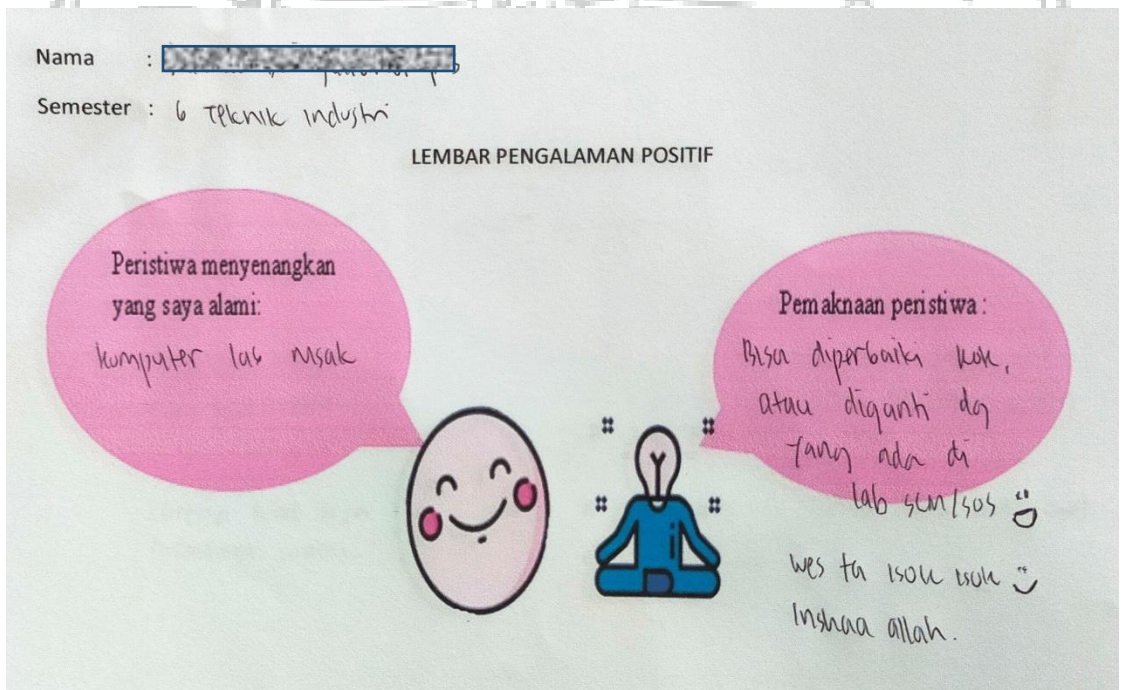 Nama :
Semester : 6 Teknik industri
LEMBAR PENGALAMAN POSITIF
Peristiwa menyenangkan
yang saya alami:
komputer lab rusak
Pemaknaan peristiwa :
Bisa diperbaiki kok,
atau diganti dg
yang ada di
lab scm/sos
wes ta isok isok
Inshaa allah.